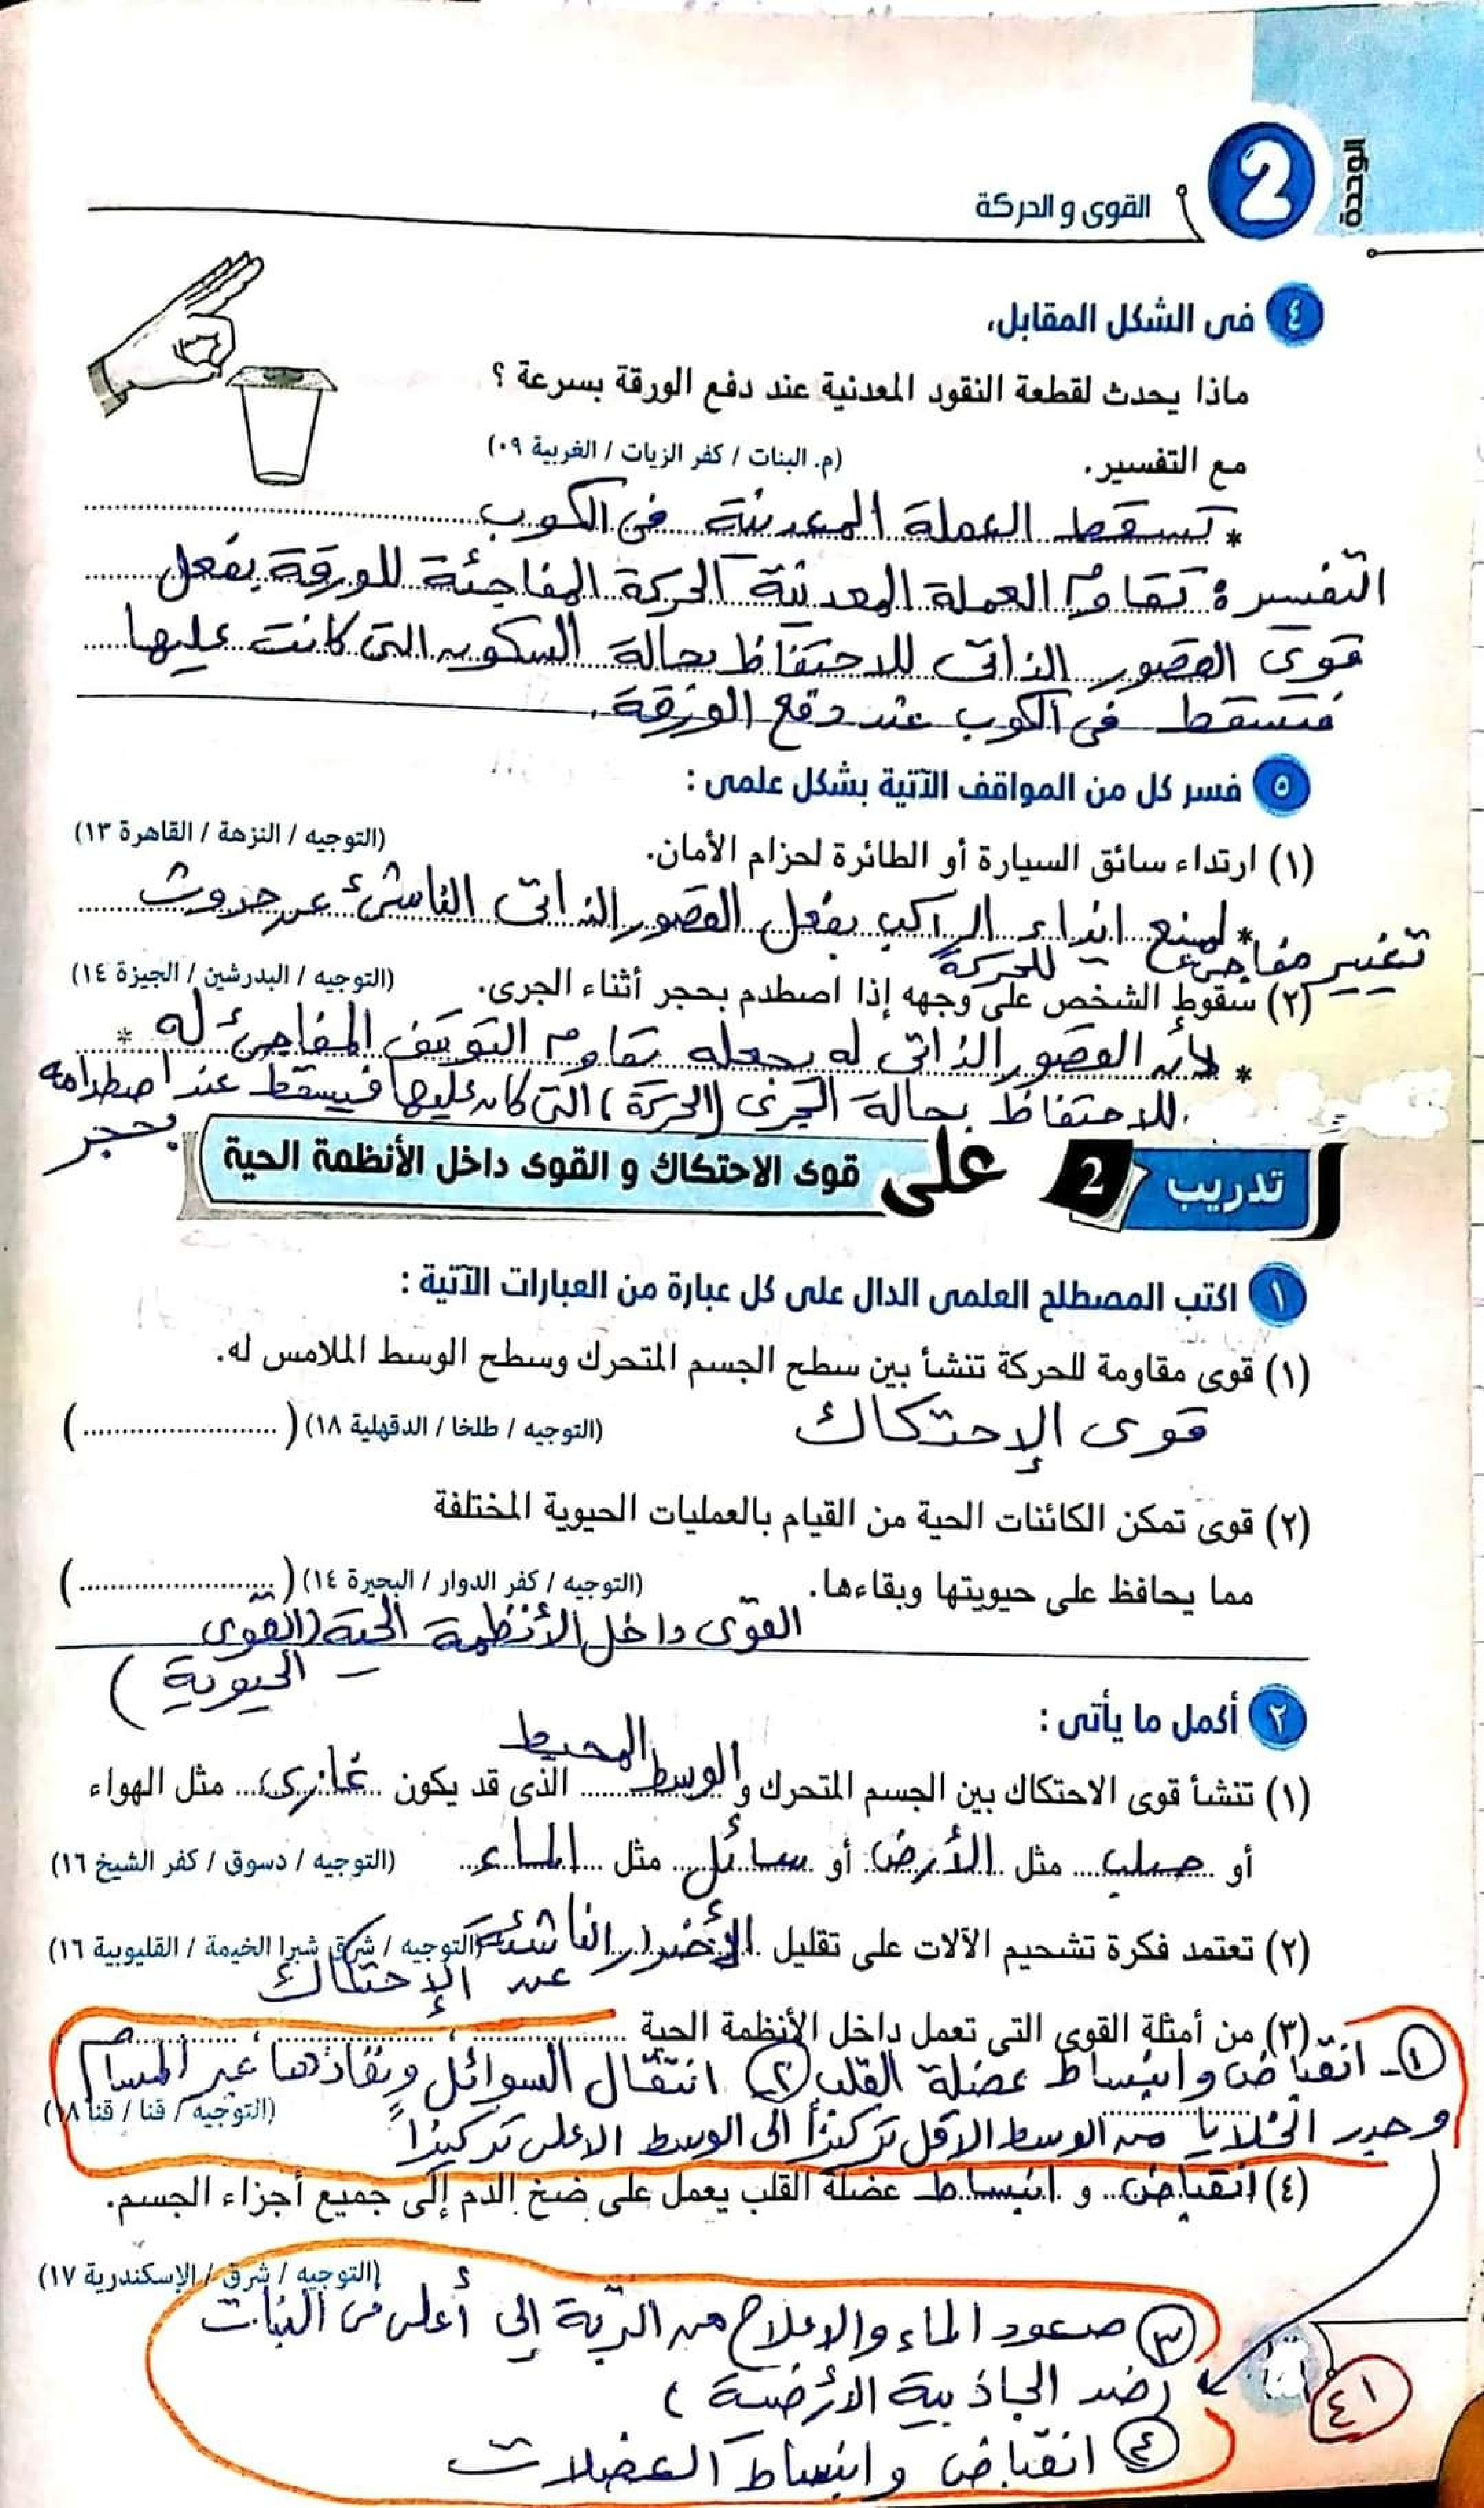 الوحدة
2
القوى و الحركة
٤ فى الشكل المقابل،
ماذا يحدث لقطعة النقود المعدنية عند دفع الورقة بسرعة ؟
مع التفسير. (م. البنات / كفر الزيات / الغربية ٠٩)
* تسقط العملة المعدنية فى الكوب
التفسير : تقاوم العملة المعدنية الحركة المفاجئة للورقة بفعل
قوى القصور الذاتى للاحتفاظ بحالة السكون التى كانت عليها
فتسقط فى الكوب عند دفع الورقة.
٥ فسر كل من المواقف الآتية بشكل علمى :
(١) ارتداء سائق السيارة أو الطائرة لحزام الأمان. (التوجيه / النزهة / القاهرة ١٣)
* لمنع ايذاء الراكب بفعل القصور الذاتى الناشئ عن حدوث
تغيير مفاجئ للحركة
(٢) سقوط الشخص على وجهه إذا اصطدم بحجر أثناء الجرى. (التوجيه / البدرشين / الجيزة ١٤)
* لأن القصور الذاتى له يجعله يقاوم التوقف المفاجئ له *
للاحتفاظ بحالة الجرى (الحركة) التى كان عليها فيسقط عند اصطدامه
بحجر
تدريب 2 على قوى الاحتكاك و القوى داخل الأنظمة الحية
١ اكتب المصطلح العلمى الدال على كل عبارة من العبارات الآتية :
(١) قوى مقاومة للحركة تنشأ بين سطح الجسم المتحرك وسطح الوسط الملامس له.
قوى الإحتكاك (التوجيه / طلخا / الدقهلية ١٨) (........................)
(٢) قوى تمكن الكائنات الحية من القيام بالعمليات الحيوية المختلفة
مما يحافظ على حيويتها وبقاءها. (التوجيه / كفر الدوار / البحيرة ١٤) (........................)
القوى داخل الأنظمة الحية (القوى
الحيوية)
٢ أكمل ما يأتى :
(١) تنشأ قوى الاحتكاك بين الجسم المتحرك و الوسط المحيط الذى قد يكون غازى مثل الهواء
أو صلب مثل الأرض أو سائل مثل الماء (التوجيه / دسوق / كفر الشيخ ١٦)
(٢) تعتمد فكرة تشحيم الآلات على تقليل الأضرار الناشئة (التوجيه / شرق شبرا الخيمة / القليوبية ١٦)
عن الإحتكاك
(٣) من أمثلة القوى التى تعمل داخل الأنظمة الحية .................. ، .................. ، ..................
١- انقباض وانبساط عضلة القلب ٢ انتقال السوائل ونفاذها عبر المسام
وجدر الخلايا من الوسط الاقل تركيزاً الى الوسط الاعلى تركيزاً (التوجيه / قنا / قنا ١٨)
(٤) انقباض و انبساط عضلة القلب يعمل على ضخ الدم إلى جميع أجزاء الجسم.
(التوجيه / شرق / الإسكندرية ١٧)
٣ صعود الماء والاملاح من التربة إلى أعلى فى النبات
(ضد الجاذبية الأرضية)
٤ انقباض وانبساط العضلات
٤١